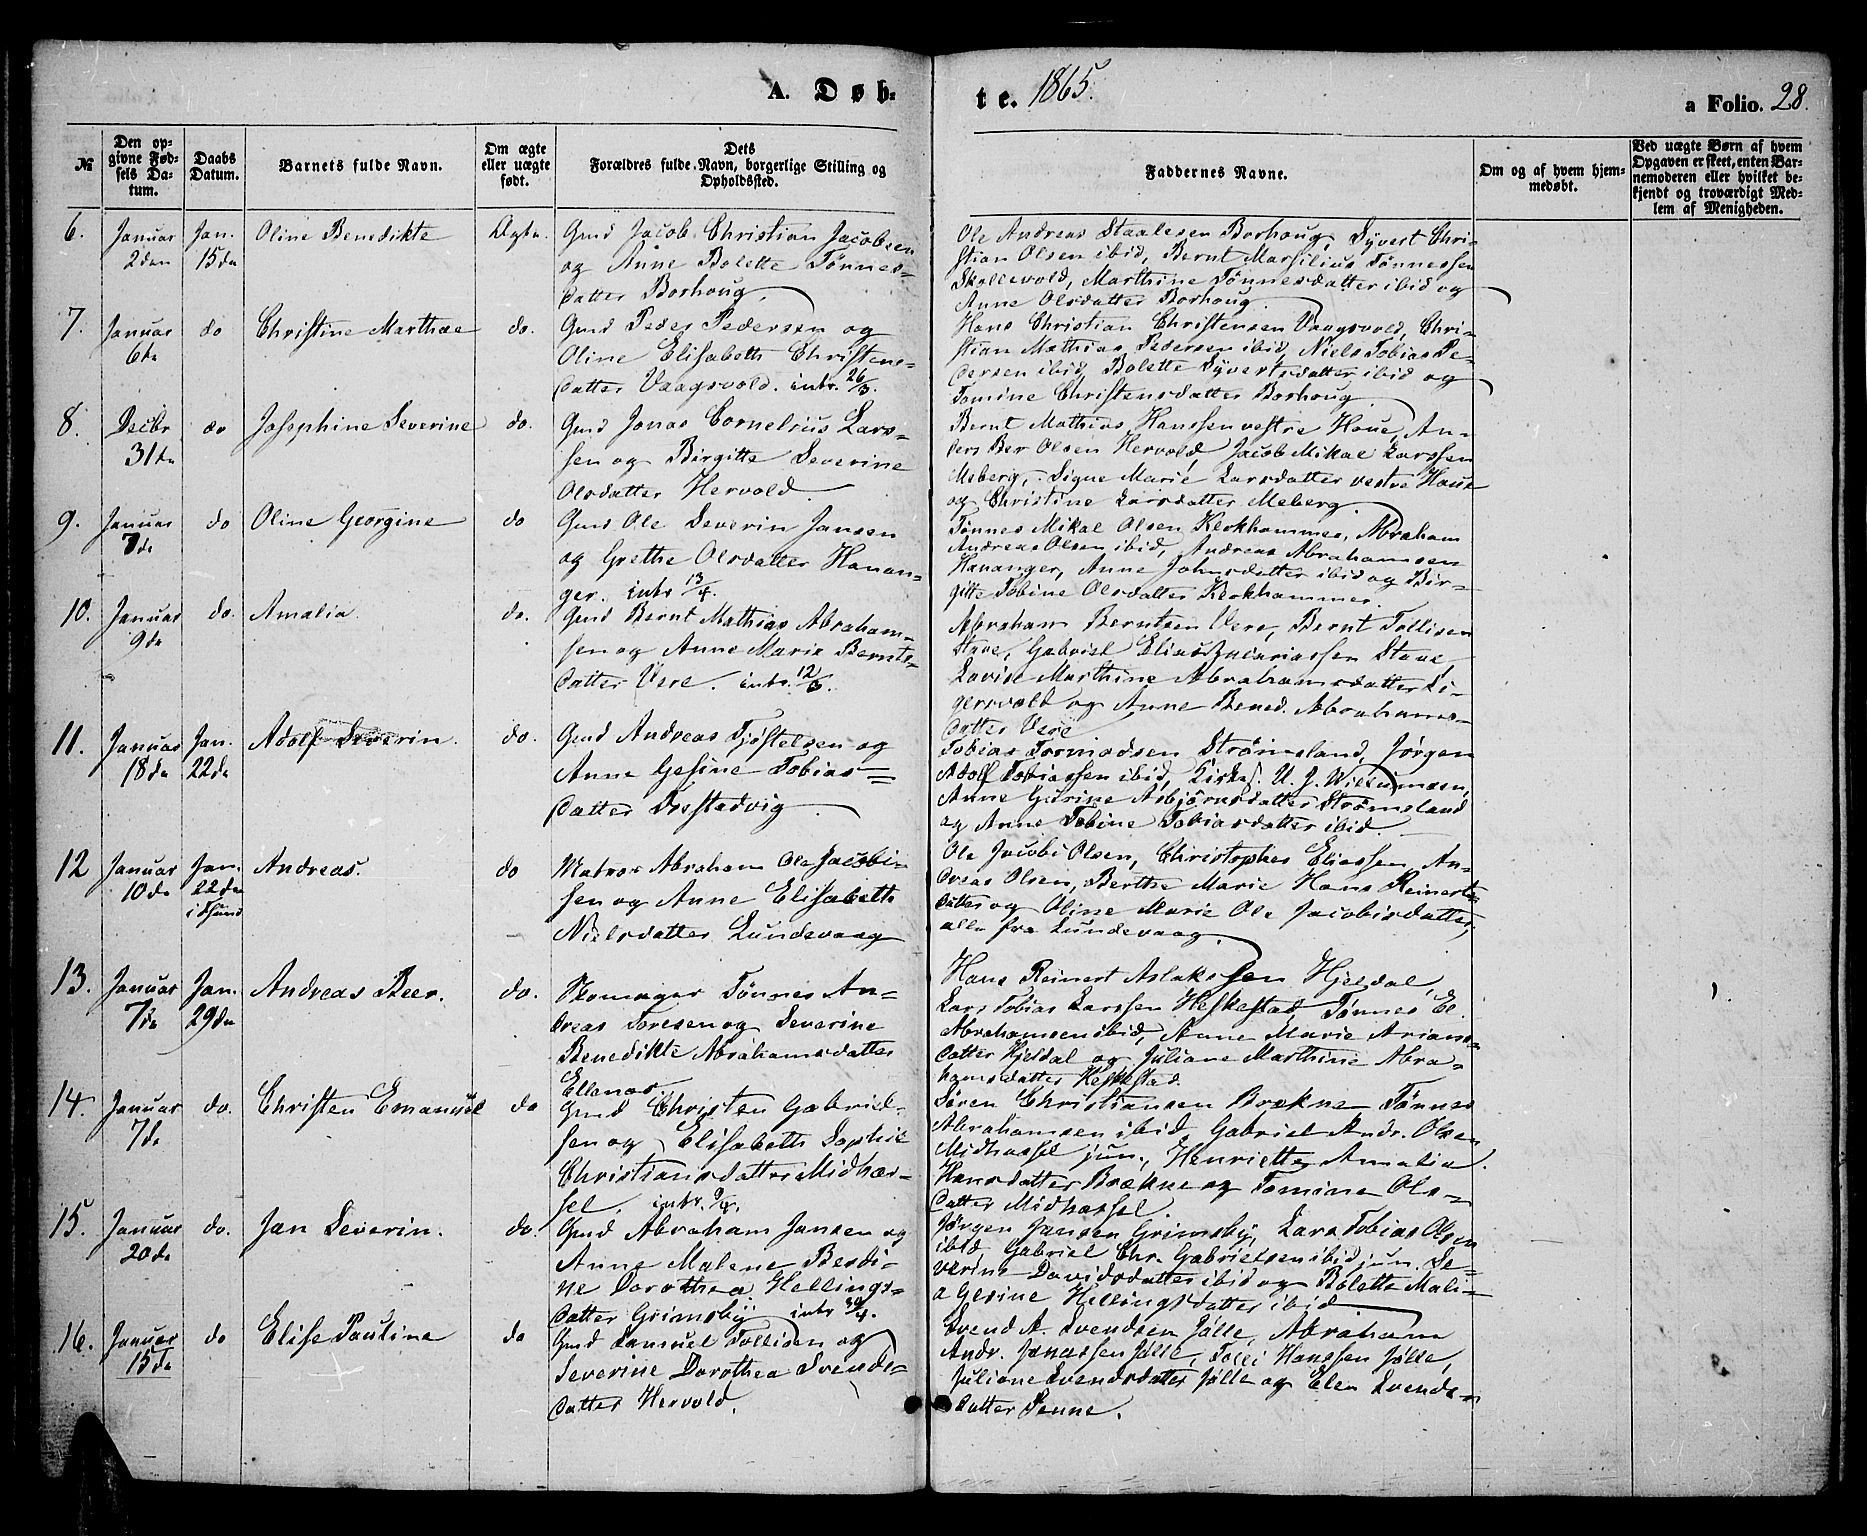 A. Døb-
te. 1865.
a Folio. 28.
№
Den op-
givne Fød-
sels Da-
tum.
Daabs
Datum.
Barnets fulde Navn.
Om ægte
eller uægte
født.
Dets
Forældres fulde Navn, borgerlige Stilling og
Opholdssted.
Faddernes Navne.
Om og af hvem hjem-
medøbt.
Ved uægte Børn af hvem
Opgaven er skeet, enten Bar-
nemoderen eller hvilket be-
kjendt og troværdigt Med-
lem af Menigheden.
6. Januar 2den Jan. 15de Oline Benedikte Ægte.
Gmd Jacob Christian Jacobsen
og Anne Bolette Tønnes-
datter Borhoug.
Ole Andreas Staalesen Borhoug, Syvert Chri-
stian Olsen ibid, Bernt Marsilius Tønnessen
Skollevold, Marthine Tønnesdatter ibid og
Anne Olsdatter Borhoug.
7. Januar 6te do Christine Marthæe do.
Gmd Peder Pedersen og
Oline Elisabeth Christens-
datter Vaagsvold. intr. 26/3.
Hans Christian Christensen Vaagsvold, Chri-
stian Mathias Pedersen ibid, Niels Tobias Pe-
dersen ibid, Bolette Syvertsdatter ibid og
Tomine Christensdatter Borhoug.
8. Decbr 31te do Josephine Severine do.
Gmd Jonas Cornelius Lars-
sen og Birgitte Severine
Olsdatter Hervold.
Bernt Mathias Hanssen vestre Haue, An-
ders Ber Olsen Hervold, Jacob Mikal Larssen
Meberg, Signe Marie Larsdatter vestre Haue
og Christine Larsdatter Meberg.
9. Januar 7de do Oline Georgine do
Gmd Ole Severin Jansen
og Grethe Olsdatter Hanan-
ger. intr 13/4.
Tønnes Mikal Olsen Kerkhammer, Abraham
Andreas Olsen ibid, Andreas Abrahamsen
Hananger, Anne Johnsdatter ibid og Bir-
gitte Tobine Olsdatter Kerkhammer.
10. Januar 9de do. Amalia. do.
Gmd Bernt Mathias Abraham-
sen og Anne Marie Bernts-
datter Vere. intr. 12/3.
Abraham Berntsen Vere, Bernt Tollisen
Stave, Gabriel Elias Zacariassen Stave
Lovise Marthine Abrahamsdatter Li-
gersvold og Anne Bened. Abrahams-
datter Vere
11. Januar 18de Jan. 22de Adolf Severin. do.
Gmd Andreas Tjøstelsen og
Anne Gesine Tobias-
datter Øsestadvig.
Tobias Tormodsen Strømsland, Jørgen
Adolf Tobiassen ibid, Kirkes. U. J.
Anne Gurine Asbjørnsdatter Strømsland
og Anne Tobine Tobiasdatter ibid.
12 Januar 10de Jan. 22de i Fsund Andreas. do
Matros Abraham Ole Jacobi-
sen og Anne Elisabeth
Nielsdatter Lundevaag
Ole Jacobi Olsen, Christopher Eliassen, An-
dreas Olsen, Berthe Marie Hans Reinerts
datter og Oline Marie Ole Jacobisdatter,
alle fra Lundevaag.
13. Januar 7de Jan. 29de Andreas Beer. do.
Skomager Tønnes An-
dreas Toresen og Severine
Benedikte Abrahamsdatter
Ellenes.
Hans Reinert Aslakssen Hjeldal,
Lars Tobias Larssen Heskestad, Tønnes El.
Abrahamsen ibid, Anne Marie Arians-
datter Hjeldal og Juliane Marthine Abra-
hamsdatter Heskestad.
14. Januar 7de do. Christen Emanuel do
Gmd Christen Gabriel-
sen og Elisabeth Sophie
Christiansdatter Midhas-
sel. intr. 9/4.
Søren Christiansen Brekne Tønnes
Abrahamsen ibid Gabriel Andr. Olsen
Midhassel jun., Henriette Amalia
Hansdatter Brækne og Tomine Ols-
datter Midhassel.
15. Januar 20de do. Jan Severin. do.
Gmd Abraham Jansen og
Anne Malene Berdi-
ne Dorothea Hellings-
datter Grimsby intr 30/4.
Jørgen Jansen Grimsby, Lars Tobias Olsen
ibid Gabriel Chr. Gabrielsen ibid jun. Se-
verine Davidsdatter ibid og Bolette Mali-
a Gesine Hellingsdatter ibid.
16. Januar 15de do Elise Pauline do
Gmd Samuel Tollisen og
Severine Dorothea Svends-
datter Hervold.
Svend A. Svendsen Jølle, Abraham
Andr. Jonassen Jølle, Tolli Hanssen Jølle,
Juliane Svendsdatter Jølle og Elen Svends-
datter Penne.